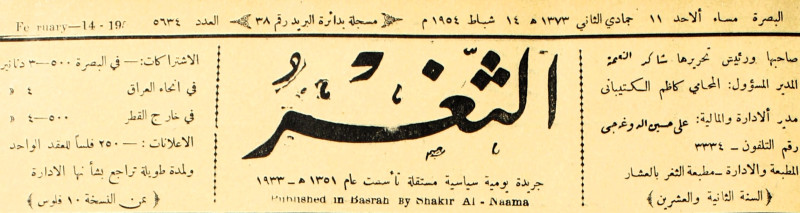 البصرة مساء ألاحد ١١ جمادي الثاني ١٣٧٣ هـ ١٤ شباط ١٩٥٤ م
مسجلة بدائرة البريد رقم ٣٨
العدد ٥٦٣٤
صاحبها ورئيس تحريرها شاكر النعمة
المدير المسؤول: المحامي كاظم الكتيباني
مدير ألادارة والمالية: علي حسين الدوغرجي
رقم التلفون — ٣٣٣٤
المطبعة والادارة — مطبعة الثغر بالعشار
﴿السنة الثانية والعشرين﴾
الثغر
جريدة يومية سياسية مستقلة تأسست عام ١٣٥١ هـ — ١٩٣٣
Published in Basrah By Shakir Al - Naama
الاشتراكات: — في البصرة ٥٠٠—٣ دنانير
في انحاء العراق ٤ »
في خارج القطر ٥٠٠—٤ »
الاعلانات: — ٢٥٠ فلساً للعقد الواحد
ولمدة طويلة تراجع بشأنها الادارة
﴿ثمن النسخة ١٠ فلوس﴾